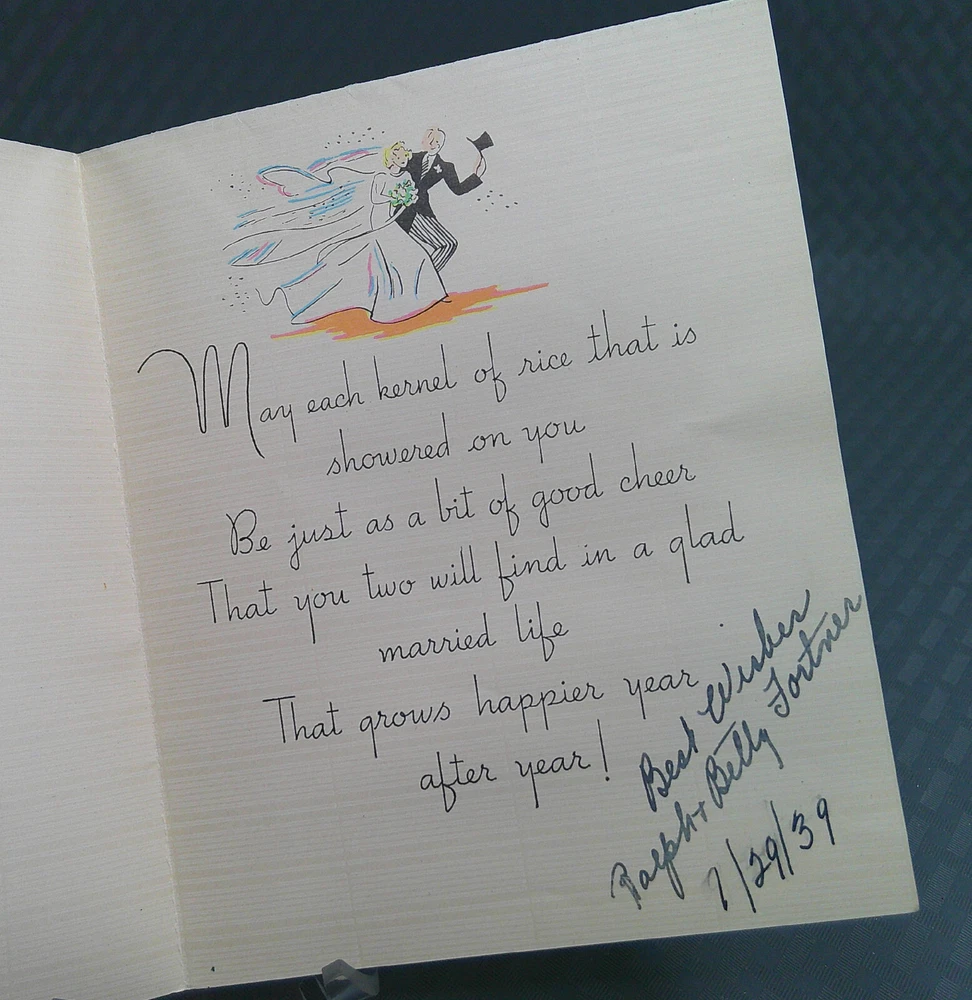 May each kernel of rice that is
showered on you
Be just as a bit of good cheer
That you two will find in a glad
married life
That grows happier year
after year!
Best Wishes
Ralph & Betty Fortner
7/29/39